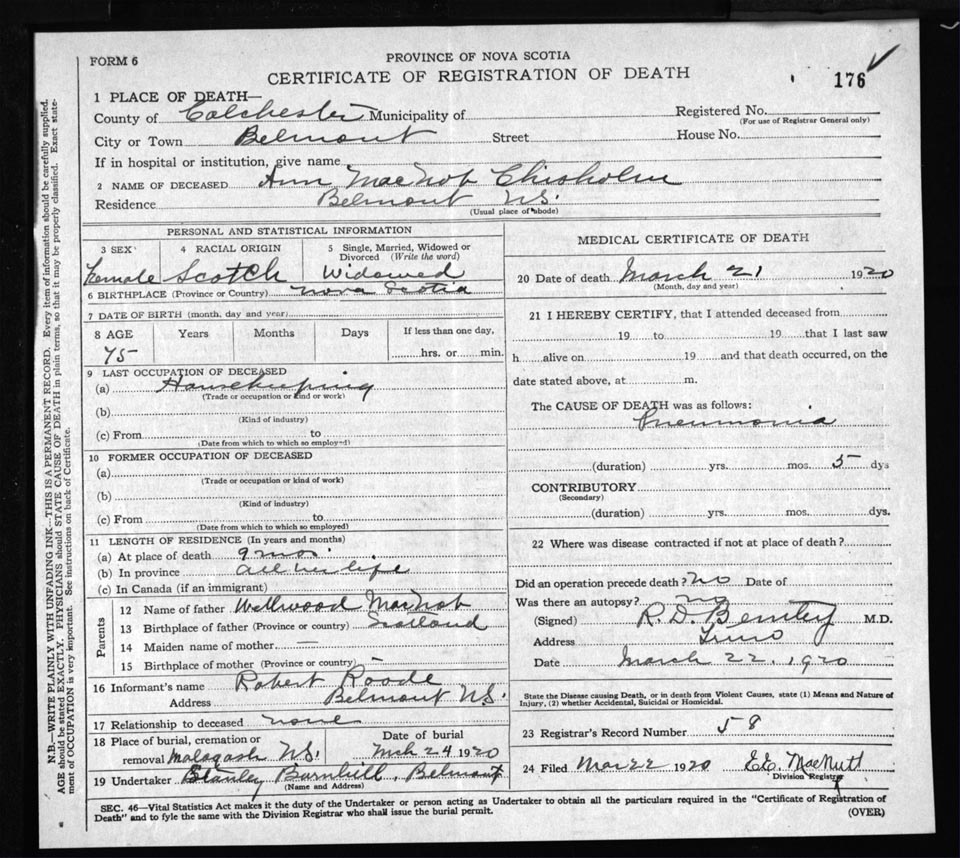 FORM 6
PROVINCE OF NOVA SCOTIA
CERTIFICATE OF REGISTRATION OF DEATH
176
1 PLACE OF DEATH—
County of Colchester Municipality of
Registered No.
(For use of Registrar General only)
City or Town Belmont Street House No.
If in hospital or institution, give name
2 NAME OF DECEASED Ann MacNab Chisholm
Residence Belmont N.S.
(Usual place of abode)
PERSONAL AND STATISTICAL INFORMATION
3 SEX 4 RACIAL ORIGIN 5 Single, Married, Widowed or
Divorced (Write the word)
Female Scotch Widowed
6 BIRTHPLACE (Province or Country) Nova Scotia
7 DATE OF BIRTH (month, day and year)
8 AGE Years Months Days If less than one day,
75 hrs. or min.
9 LAST OCCUPATION OF DECEASED
(a) Housekeeping
(Trade or occupation or kind or work)
(b)
(Kind of industry)
(c) From to
(Date from which to which so employed)
10 FORMER OCCUPATION OF DECEASED
(a)
(Trade or occupation or kind of work)
(b)
(Kind of industry)
(c) From to
(Date from which to which so employed)
11 LENGTH OF RESIDENCE (In years and months)
(a) At place of death 9 mos.
(b) In province all her life
(c) In Canada (if an immigrant)
Parents
12 Name of father Wellwood MacNab
13 Birthplace of father (Province or country) Scotland
14 Maiden name of mother —
15 Birthplace of mother (Province or country) –
16 Informant's name Robert Roode
Address Belmont N.S.
17 Relationship to deceased none
18 Place of burial, cremation or Date of burial
removal Malagash N.S. Mch 24 1920
19 Undertaker Stanley Barnhill, Belmont
(Name and Address)
MEDICAL CERTIFICATE OF DEATH
20 Date of death March 21 1920
(Month, day and year)
21 I HEREBY CERTIFY, that I attended deceased from
19 to 19 that I last saw
h alive on 19 and that death occurred, on the
date stated above, at m.
The CAUSE OF DEATH was as follows:
Pneumonia
(duration) yrs. mos. 5 dys
CONTRIBUTORY
(Secondary)
(duration) yrs. mos. dys.
22 Where was disease contracted if not at place of death?
Did an operation precede death? no Date of
Was there an autopsy? no
(Signed) R. D. M.D.
Address Truro
Date March 22, 1920
State the Disease causing Death, or in death from Violent Causes, state (1) Means and Nature of
Injury, (2) whether Accidental, Suicidal or Homicidal.
23 Registrar's Record Number 58
24 Filed Mar 22 1920 E.E. MacNutt
Division Registrar
SEC. 46—Vital Statistics Act makes it the duty of the Undertaker or person acting as Undertaker to obtain all the particulars required in the "Certificate of Registration of
Death" and to fyle the same with the Division Registrar who shall issue the burial permit. (OVER)
N.B.—WRITE PLAINLY WITH UNFADING INK—THIS IS A PERMANENT RECORD. Every item of information should be carefully supplied.
AGE should be stated EXACTLY. PHYSICIANS should STATE CAUSE OF DEATH in plain terms, so that it may be properly classified. Exact state-
ment of OCCUPATION is very important. See instructions on back of Certificate.